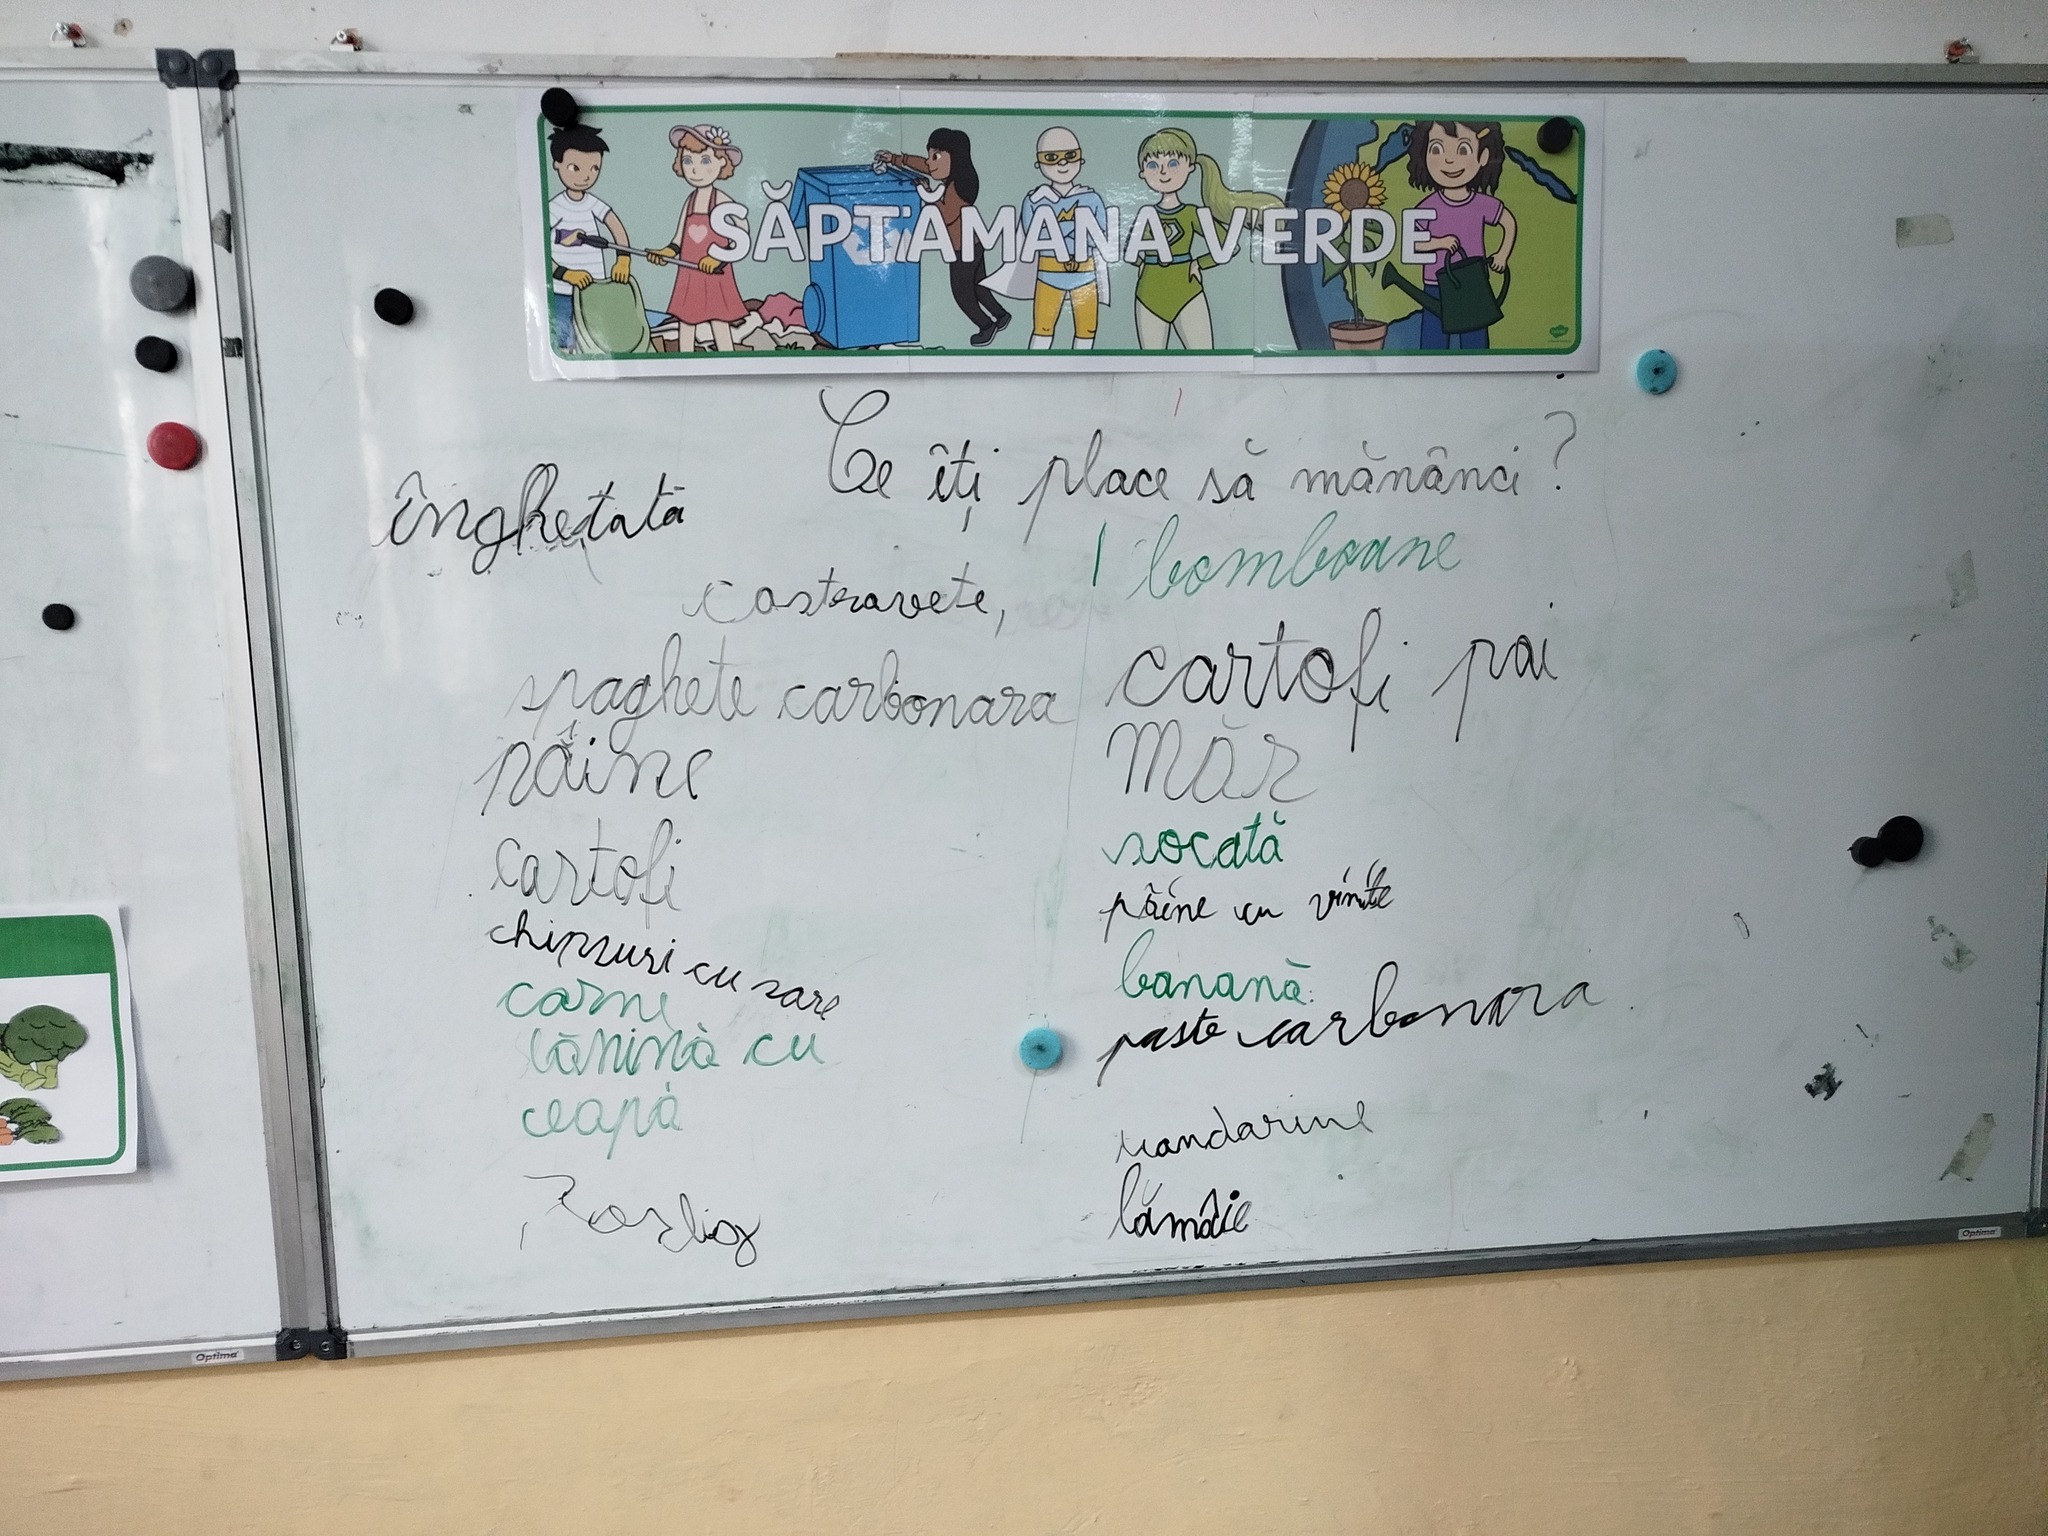 SĂPTĂMÂNA VERDE
Ce îți place să mănânci?
înghețată
bomboane
castravete,
spaghete carbonara
cartofi pai
pâine
măr
cartofi
socată
chipsuri cu sare
pâine cu
carne
banană
paste carbonara
cu
ceapă
mandarine
lămâie
Optima
Optima